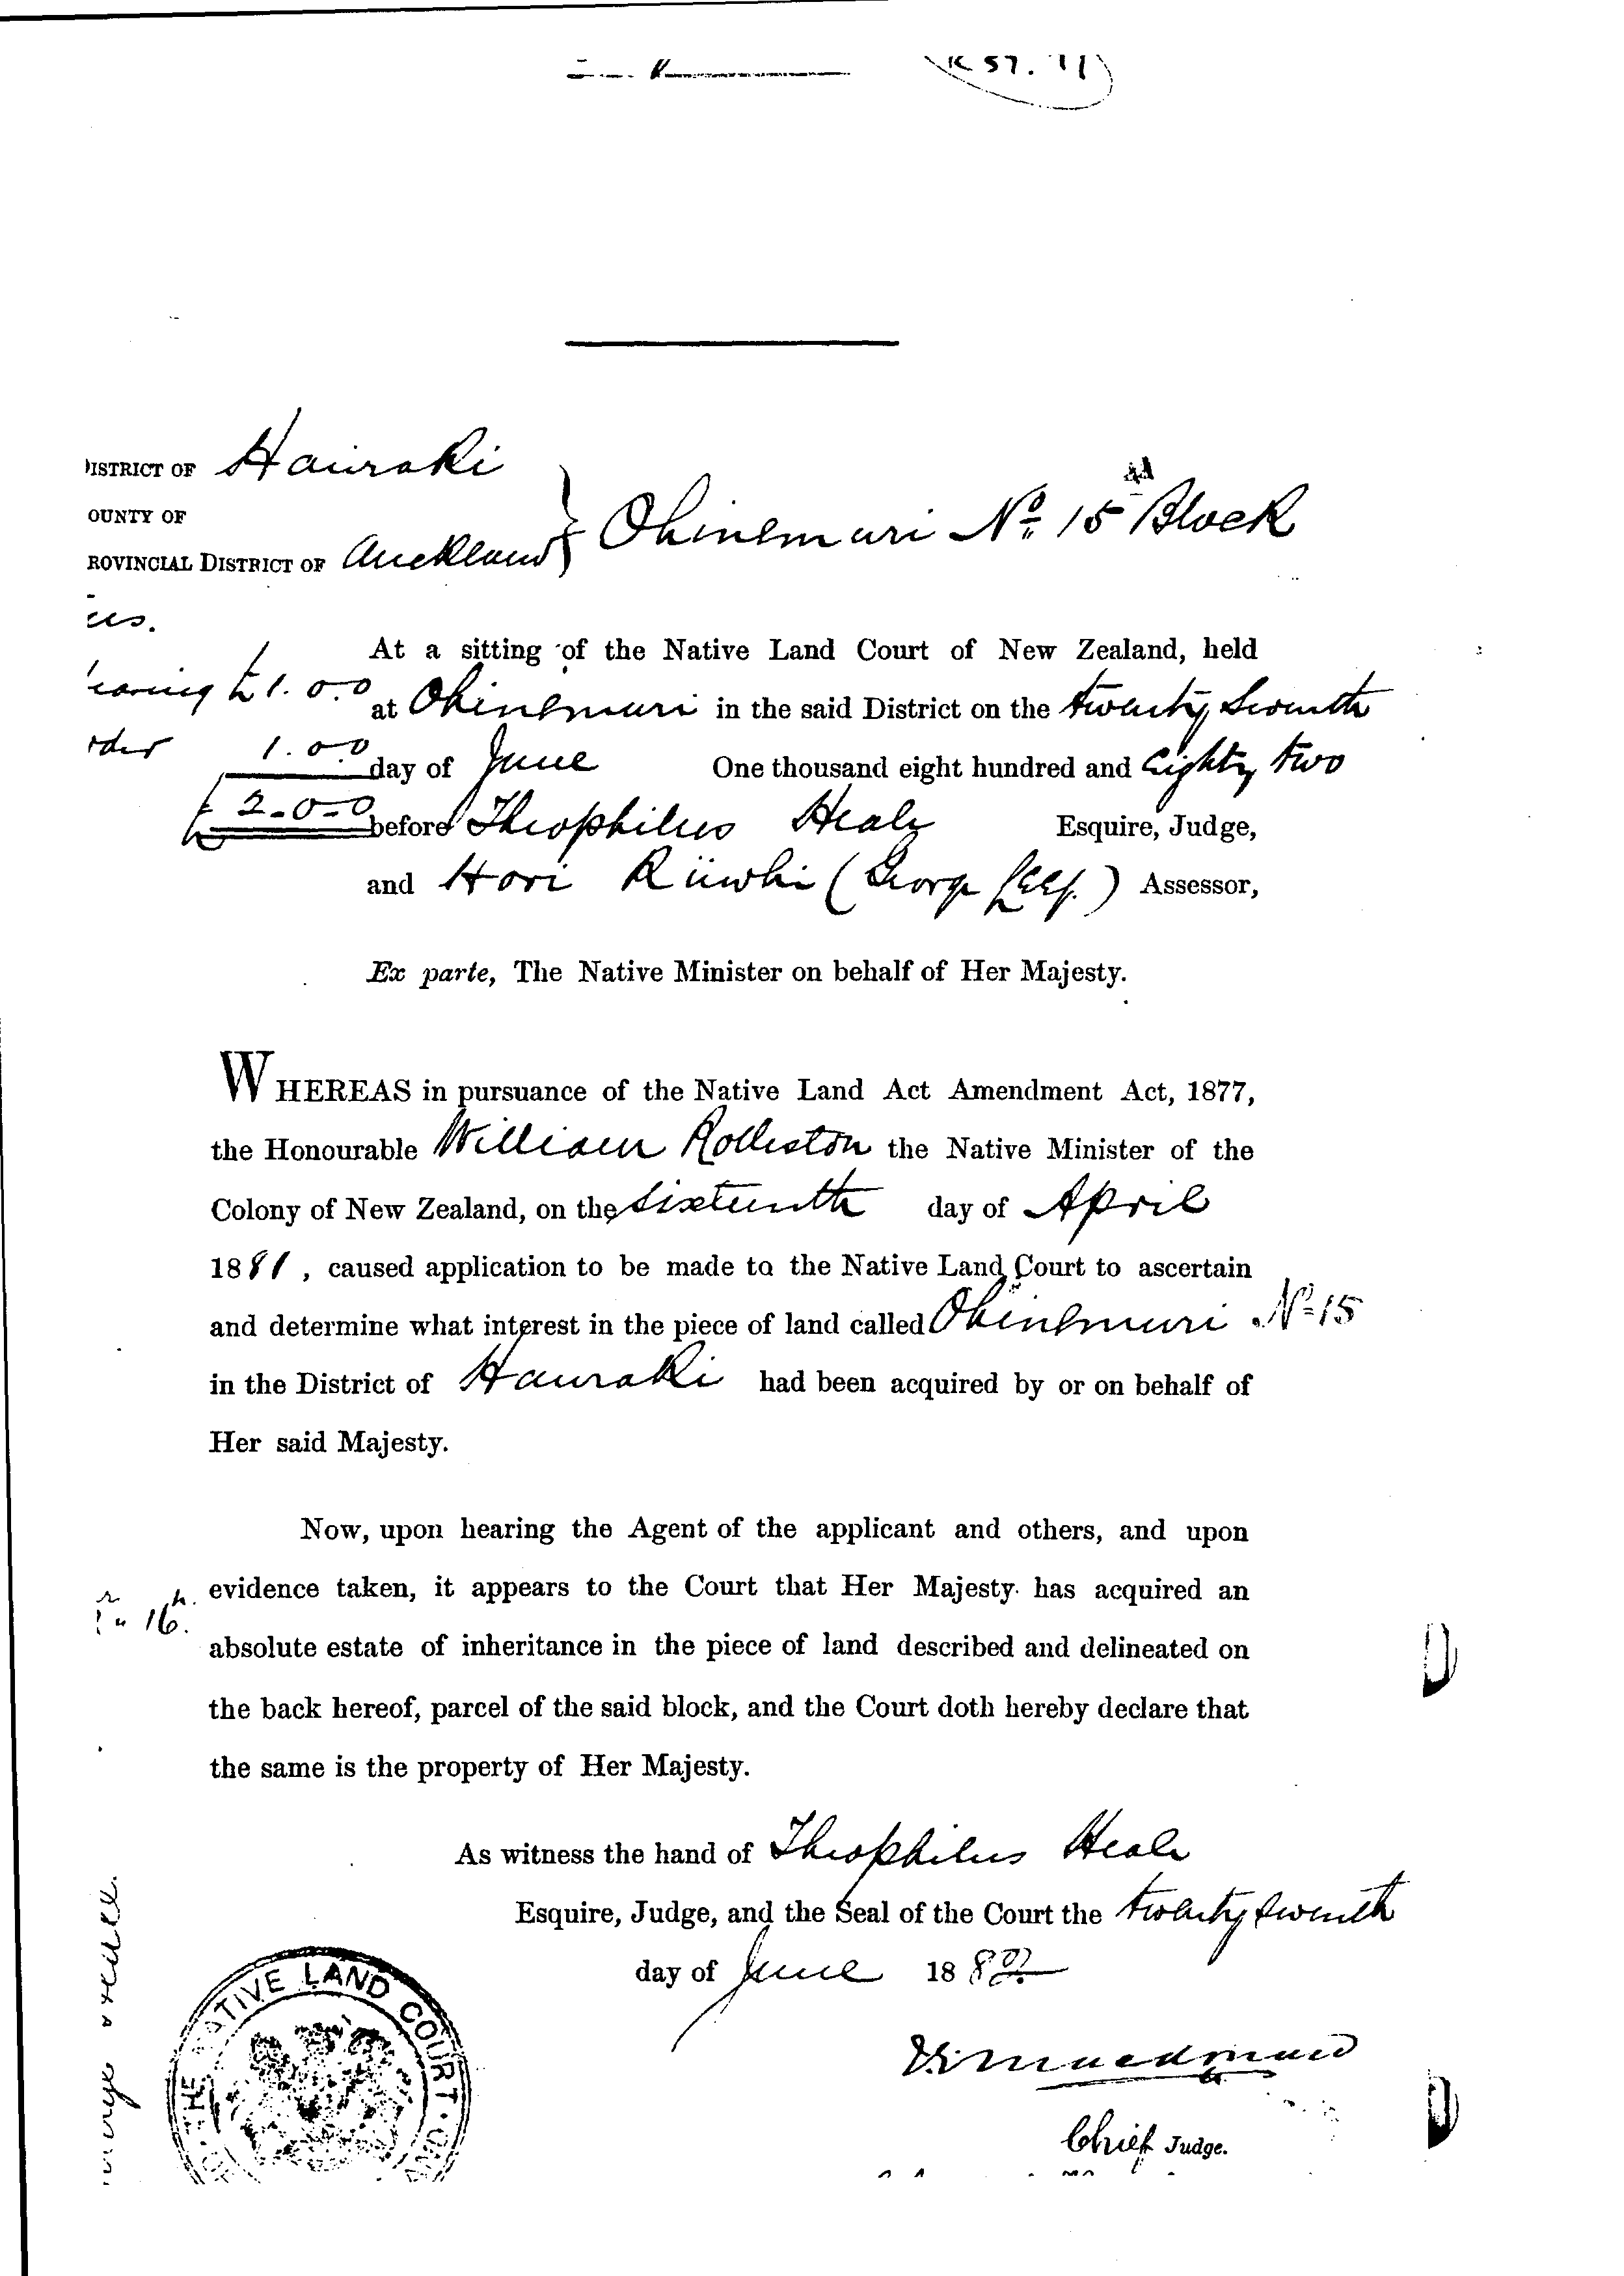 K 57. 11
DISTRICT OF Hauraki
OUNTY OF
ROVINCIAL DISTRICT OF Auckland } Ohinemuri No. 15 Block
At a sitting of the Native Land Court of New Zealand, held
earing £1.0.0 at Ohinemuri in the said District on the twenty seventh
rder 1.0.0 day of June One thousand eight hundred and Eighty two
£ 2-0-0 before Theophilus Heale Esquire, Judge,
and Hori (George ) Assessor,
Ex parte, The Native Minister on behalf of Her Majesty.
WHEREAS in pursuance of the Native Land Act Amendment Act, 1877,
the Honourable William Rolleston the Native Minister of the
Colony of New Zealand, on the sixteenth day of April
1881, caused application to be made to the Native Land Court to ascertain
and determine what interest in the piece of land called Ohinemuri No. 15
in the District of Hauraki had been acquired by or on behalf of
Her said Majesty.
Now, upon hearing the Agent of the applicant and others, and upon
evidence taken, it appears to the Court that Her Majesty has acquired an
16.
absolute estate of inheritance in the piece of land described and delineated on
the back hereof, parcel of the said block, and the Court doth hereby declare that
the same is the property of Her Majesty.
As witness the hand of Theophilus Heale
Esquire, Judge, and the Seal of the Court the twenty seventh
day of June 1882
Chief Judge.
THE NATIVE LAND COURT